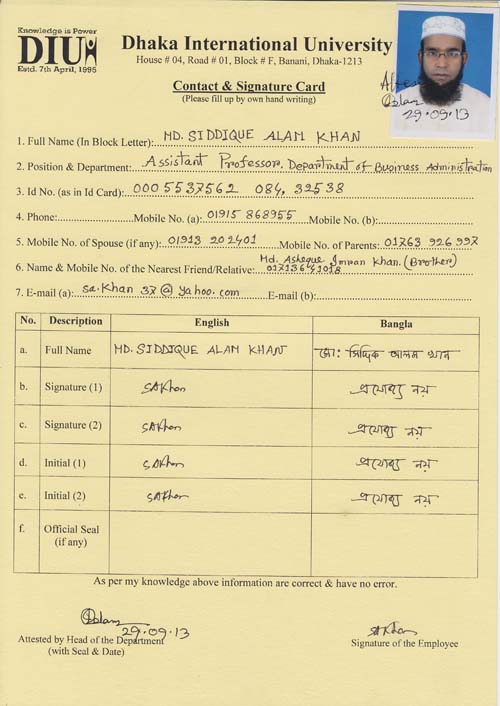 Knowledge is Power
DIU
Estd. 7th April, 1995
Dhaka International University
House # 04, Road # 01, Block # F, Banani, Dhaka-1213
Contact & Signature Card
(Please fill up by own hand writing)
29.09.13
1. Full Name (In Block Letter): MD. SIDDIQUE ALAM KHAN
2. Position & Department: Assistant Professor, Department of Business Administration
3. Id No. (as in Id Card): 000 5537562 084, 32538
4. Phone: Mobile No. (a): 01915 868955 Mobile No. (b):
5. Mobile No. of Spouse (if any): 01913 202401 Mobile No. of Parents: 01763 926997
Md. Asheque Imran Khan. (Brother)
6. Name & Mobile No. of the Nearest Friend/Relative:
7. E-mail (a): sa.khan 37@yahoo.com E-mail (b):
No. Description English Bangla
a. Full Name MD. SIDDIQUE ALAM KHAN মো: সিদ্দিক আলম খান
b. Signature (1) SAKhan প্রযোজ্য নয়
c. Signature (2) SAKhan প্রযোজ্য নয়
d. Initial (1) SAKhan প্রযোজ্য নয়
e. Initial (2) SAKhan প্রযোজ্য নয়
f. Official Seal
(if any)
As per my knowledge above information are correct & have no error.
29.09.13
SAKhan
Attested by Head of the Department
(with Seal & Date)
Signature of the Employee